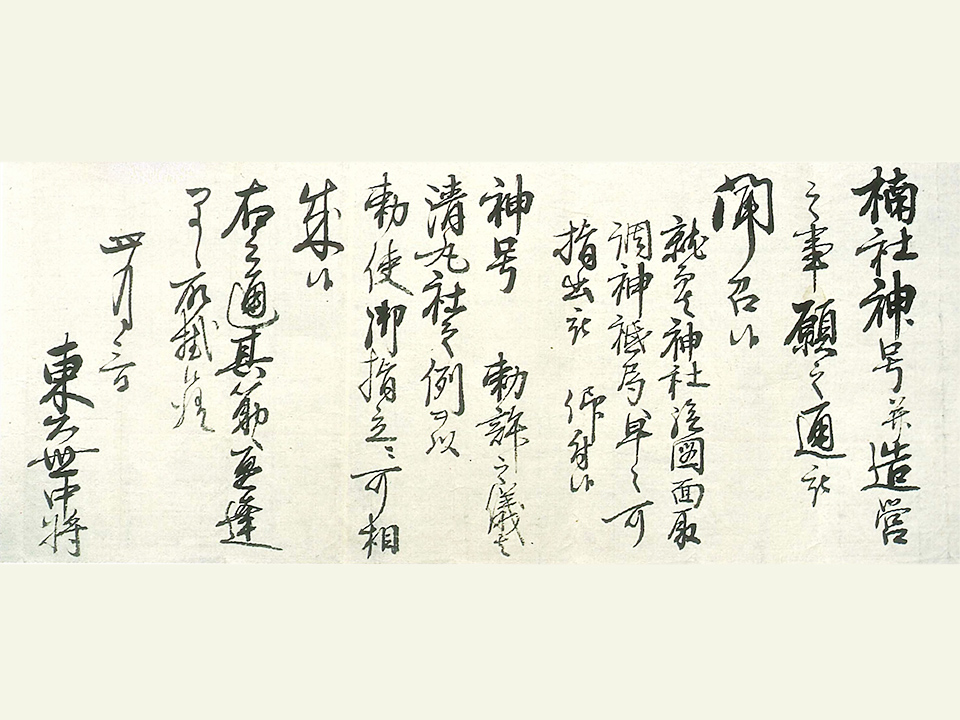 楠社神号并造営
之事願之通被
聞召候
就而者神社絵図面取
調神祇局早々可
指出被 仰付候
神号 勅許之儀者
清丸社之例ヲ以
勅使御指立ニ可相
成候
右之通其筋ゟ直達
四月
東久世中将